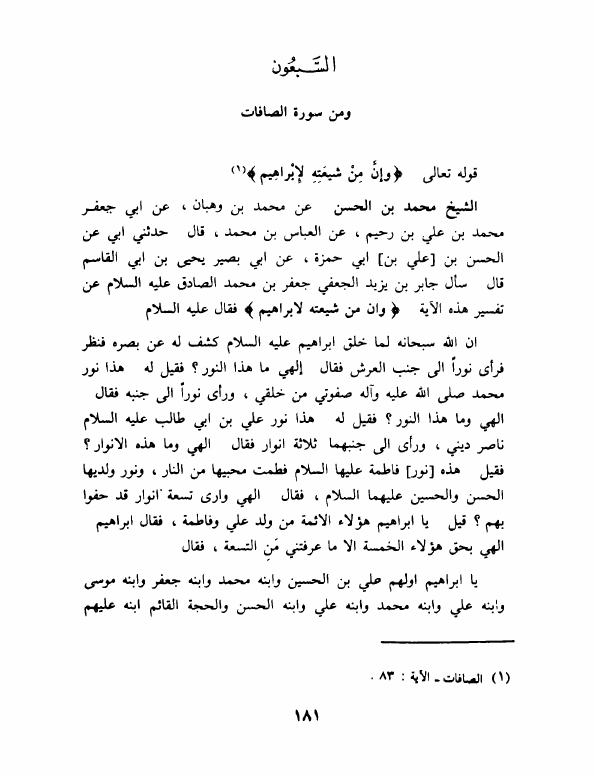 السَّبعُون
ومن سورة الصافات
قوله تعالى ﴿وإنَّ مِنْ شيعَتِهِ لإبْراهيم﴾(١)
الشيخ محمد بن الحسن عن محمد بن وهبان ، عن ابي جعفر
محمد بن علي بن رحيم ، عن العباس بن محمد ، قال حدثني ابي عن
الحسن بن [علي بن] ابي حمزة ، عن ابي بصير يحيى بن ابي القاسم
قال سأل جابر بن يزيد الجعفي جعفر بن محمد الصادق عليه السلام عن
تفسير هذه الآية ﴿ وان من شيعته لابراهيم ﴾ فقال عليه السلام
ان الله سبحانه لما خلق ابراهيم عليه السلام كشف له عن بصره فنظر
فرأى نوراً الى جنب العرش فقال إلهي ما هذا النور ؟ فقيل له هذا نور
محمد صلى الله عليه وآله صفوتي من خلقي ، ورأى نوراً الى جنبه فقال
الهي وما هذا النور ؟ فقيل له هذا نور علي بن ابي طالب عليه السلام
ناصر ديني ، ورأى الى جنبهما ثلاثة انوار فقال الهي وما هذه الانوار ؟
فقيل هذه [نور] فاطمة عليها السلام فطمت محبيها من النار ، ونور ولديها
الحسن والحسين عليهما السلام ، فقال الهي وارى تسعة انوار قد حفوا
بهم ؟ قيل يا ابراهيم هؤلاء الائمة من ولد علي وفاطمة ، فقال ابراهيم
الهي بحق هؤلاء الخمسة الا ما عرفتني مَنِ التسعة ، فقال
يا ابراهيم اولهم علي بن الحسين وابنه محمد وابنه جعفر وابنه موسى
وابنه علي وابنه محمد وابنه علي وابنه الحسن والحجة القائم ابنه عليهم
(١) الصافات ـ الآية : ٨٣ .
١٨١